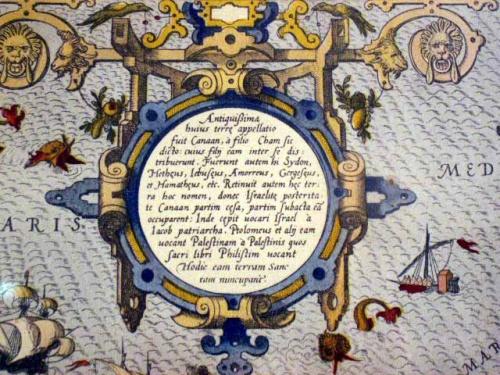 Antiquißima
huius terrę appellatio
fuit Canaan, à filio Cham sic
dicto: cuius filij eam inter se dis-
tribuerunt. Fuerunt autem hi Sydon,
Hethęus, Iebusęus, Amorreus, Gergeseus,
et Hamathęus, etc. Retinuit autem hęc ter-
ra hoc nomen, donec Israelitę posterita-
te Canaan partim cęsa, partim subacta eā
occuparent: Inde cępit uocari Israel à
Iacob patriarcha. Ptolomeus et alij eam
uocant Palestinam à Palestinis quos
sacri libri Philistim uocant
Hodie eam terram Sanc
tam nuncupant.
MED
ARIS
MAR